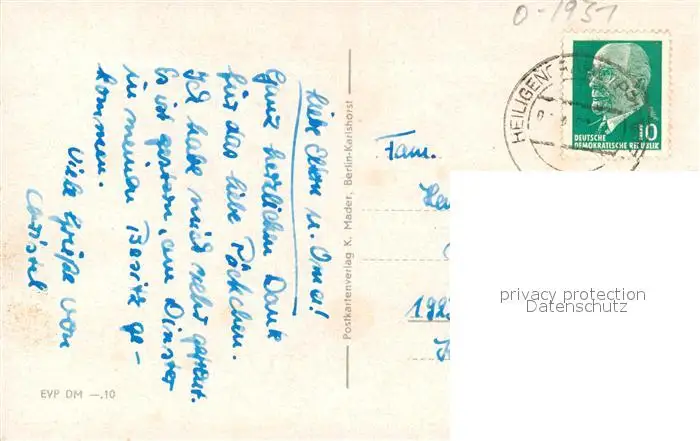 Liebe Eltern u. Oma!
Ganz herzlichen Dank
für das liebe Päckchen.
Ich habe mich sehr gefreut.
Es ist gestern, am Dinstag
in meinen Besitz ge-
kommen.
Viele Grüße von
Christel
EVP DM —.10
Postkartenverlag K. Mader, Berlin-Karlshorst
0-1931
HEILIGEN
10
DEUTSCHE
DEMOKRATISCHE REPUBLIK
Fam.
privacy protection
Datenschutz